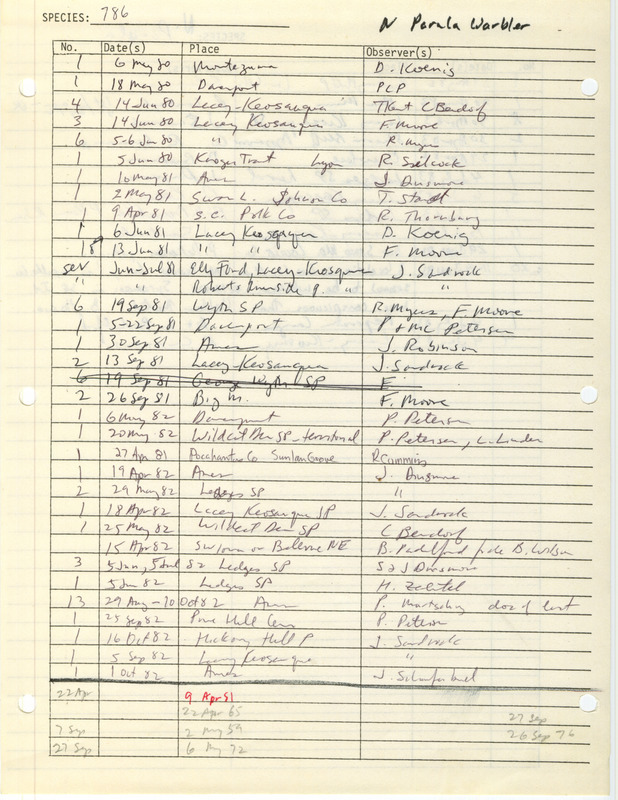 SPECIES: 786
N Parula Warbler
No. Date(s) Place Observer(s)
1 6 May 80 Montezuma D. Koenig
1 18 May 80 Davenport PCP
4 14 Jun 80 Lacey-Keosauqua TKent C Bendorf
3 14 Jun 80 Lacey Keosauqua F. Moore
6 5-6 Jun 80 " R. Myers
1 5 Jun 80 Lyon R. Silcock
1 10 May 81 Ames J. Dinsmore
1 2 May 81 Swan L. Johnson Co T. Staudt
1 9 Apr 81 S.C. Polk Co R. Thornburg
1 6 Jun 81 Lacey Keosauqua D. Koenig
18 13 Jun 81 " " F. Moore
sev Jun-Jul 81 Ely Ford, Lacey-Keosauqua J. Sandrock
" " Roberts " "
6 19 Sep 81 Wyth SP R. Myers, F. Moore
1 5-22 Sep 81 Davenport P + MC Petersen
1 30 Sep 81 Ames J. Robinson
2 13 Sep 81 Lacey-Keosauqua J. Sandrock
6 19 Sep 81 George Wyth SP F
2 26 Sep 81 Big M. F. Moore
1 6 May 82 Davenport P. Petersen
1 20 May 82 Wildcat Den SP - territorial P. Petersen, L. Linder
1 27 Apr 81 Pocahontas Co Sunken Grove R Cummins
1 19 Apr 82 Ames J. Dinsmore
2 29 May 82 Ledges SP "
1 18 Apr 82 Lacey Keosauqua SP J. Sandrock
1 25 May 82 Wildcat Den SP C Bendorf
15 Apr 82 SW Iowa or Bellevue NE B. Padelford fide B. Wilson
3 5 Jun, 5 Jul 82 Ledges SP S & J Dinsmore
1 5 Jun 82 Ledges SP H. Zaletel
13 29 Aug-10 Oct 82 Ames P. Martsching
1 25 Sep 82 Pine Hill Cem P. Petersen
1 16 Oct 82 Hickory Hill P J. Sandrock
1 5 Sep 82 Lacey Keosauqua "
1 1 Oct 82 Ames J. Schaufenbuel
22 Apr 9 Apr 81
22 Apr 65 27 Sep
7 Sep 2 May 59 26 Sep 76
27 Sep 6 May 72